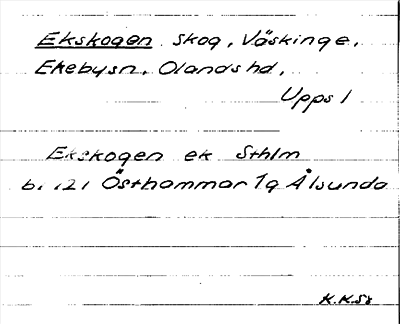 Ekskogen skog, Väskinge,
Ekebysn, Olands hd,
Upps l
Ekskogen ek Sthlm
121 Östhammar 1q Ålsunda
K.K.58